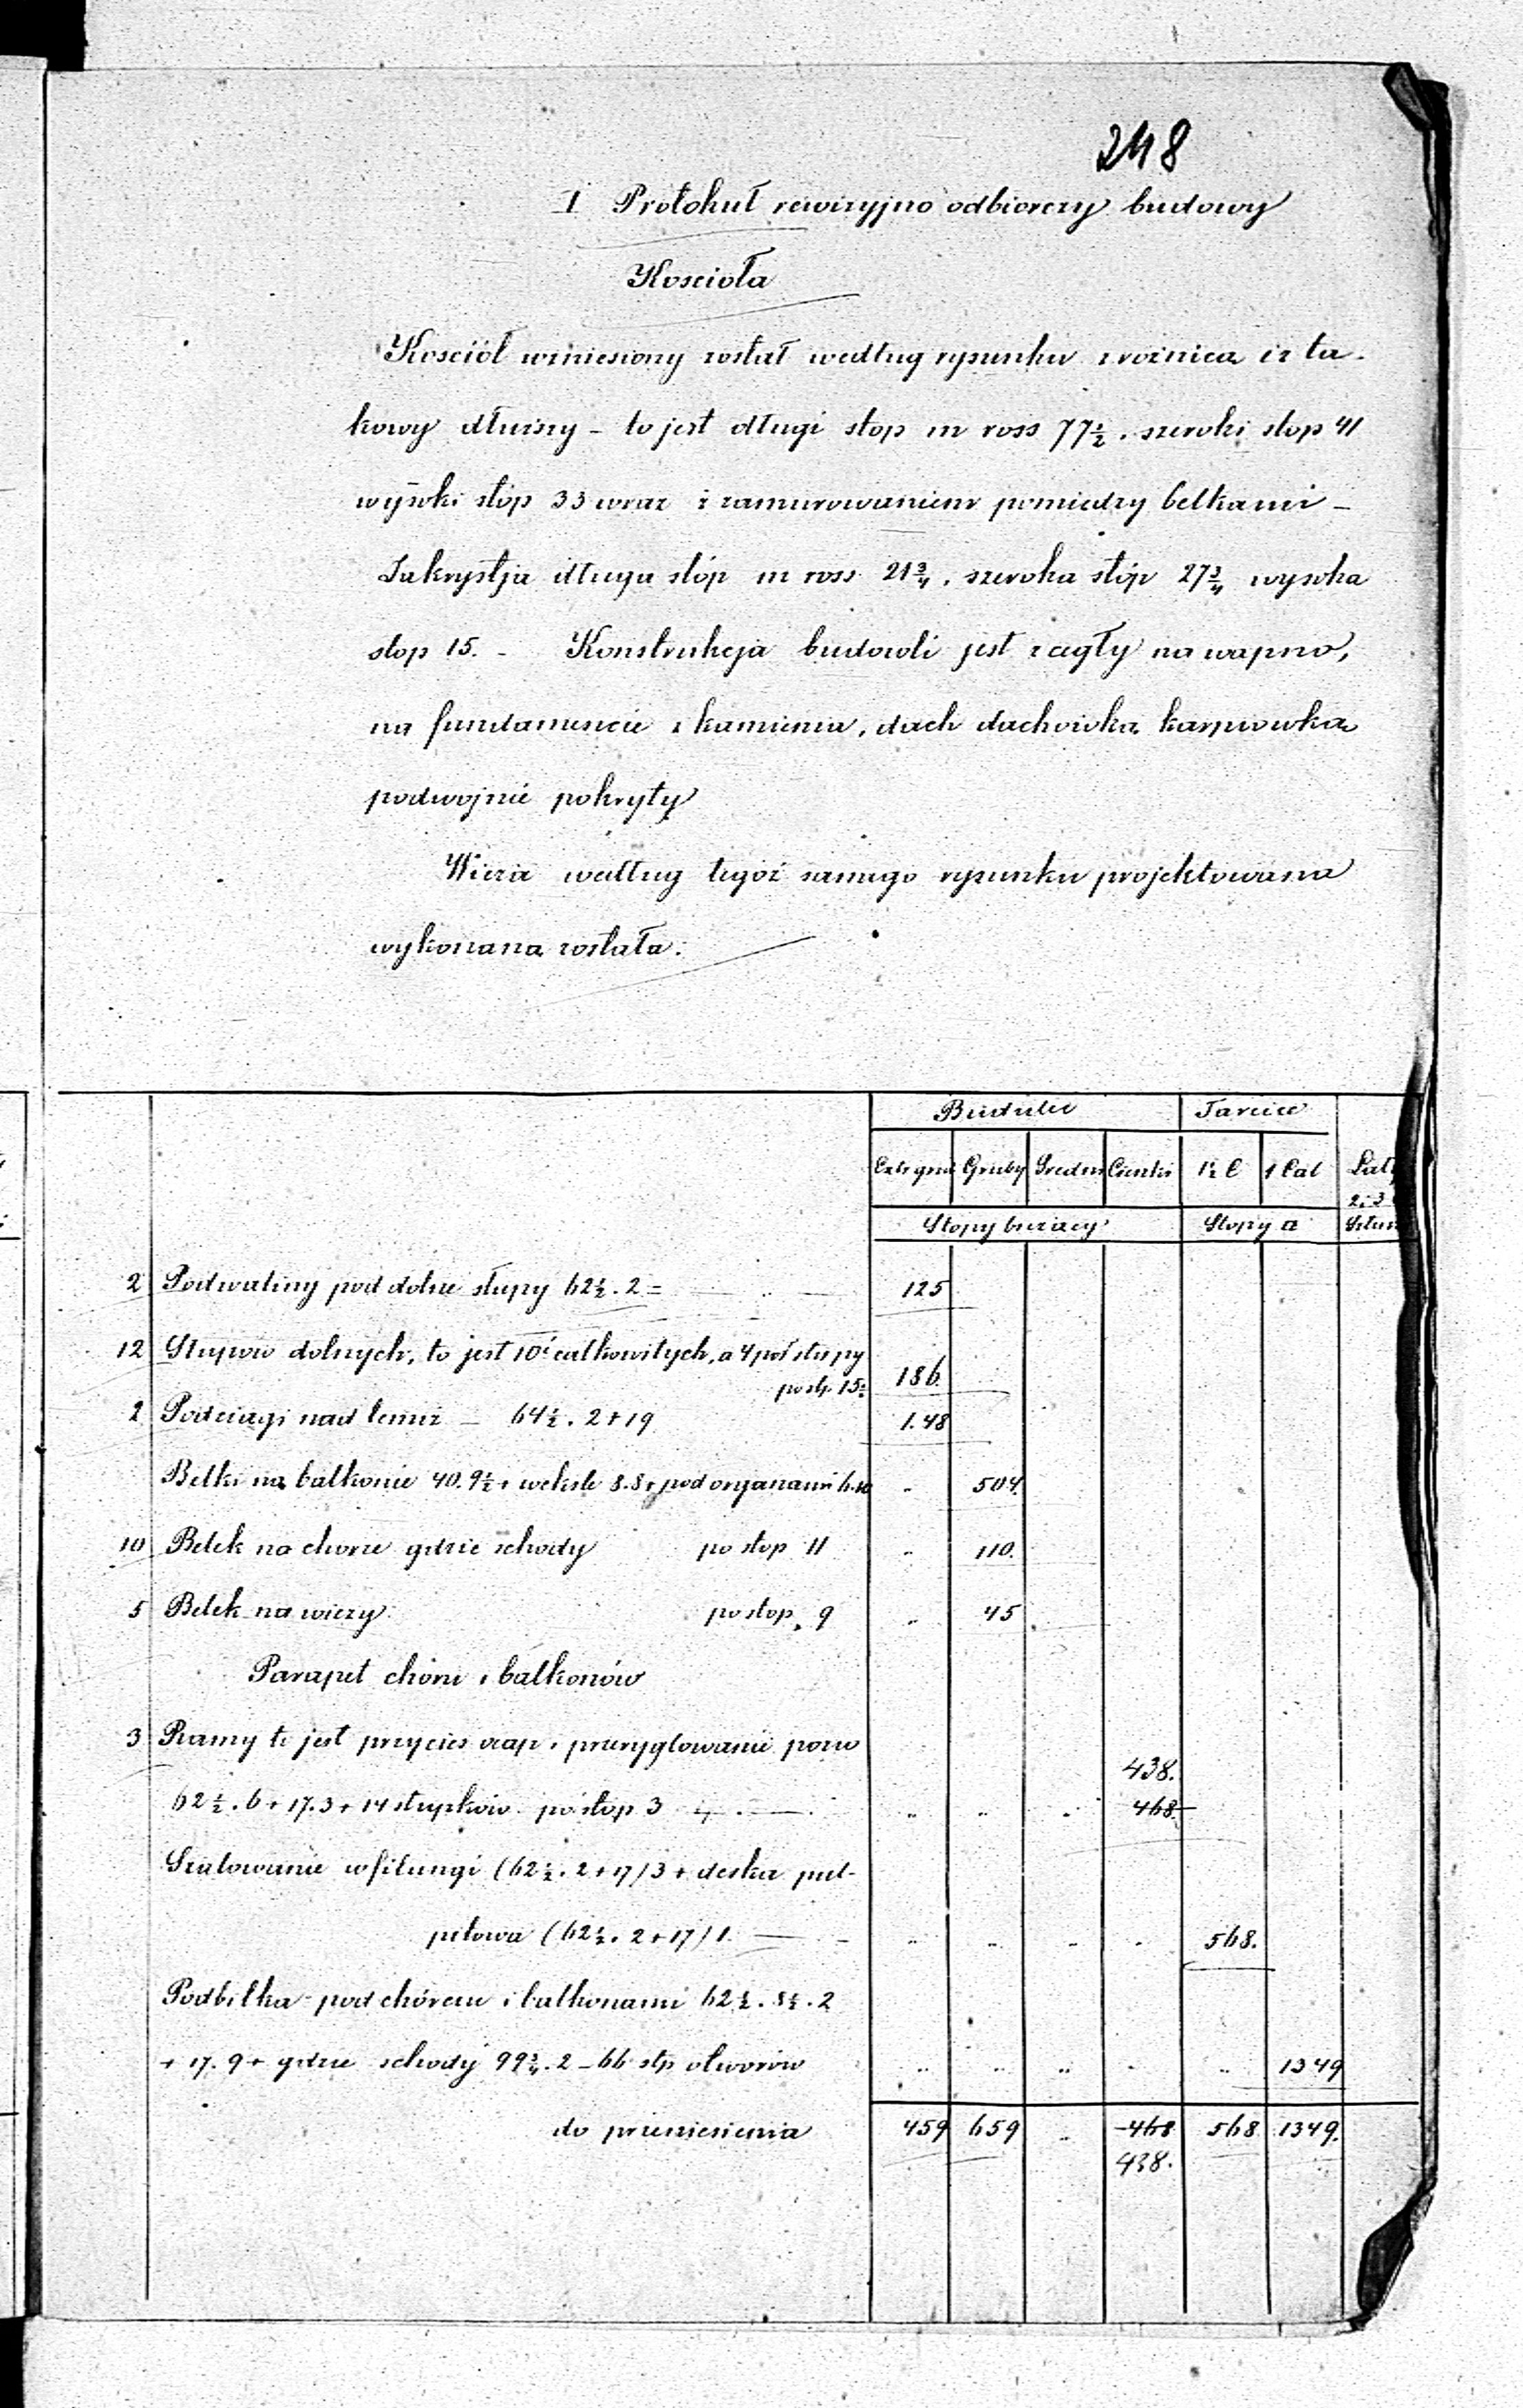 248
I Protokuł rewizyjno odbiorczy budowy
Kościoła
Kościół wzniesiony został według rysunku z roźnica iż ta-
kowy dłuższy – to jest długi stop m ross 77½. szeroki stop 41
wysoki stóp 33 wraz z zamurowaniem pomiedzy belkami –
Zakrystja długa stóp m ross 21¾, szeroka stóp 27¾ wysoka
stop 15. – Konstrukcja budowli jest z cegły na wapno,
na fundamencie z kamienia, dach dachówka karpiowka
podwojnie pokryty
Wieża według tegoż samego rysunku projektowana
wykonana została.
Budulec Tarcice
Extrgru Gruby Sredni Cienki 1½ C 1 Cal Łaty
2. 3
Stopy bieżacy Stopy □ Sztuk
2 Podwaliny pod dolne słupy 62½ . 2 = 125
12 Słupow dolnych, to jest 10 całkowitych, a 4 poł słupy
po st. 15½ 186.
2 Podciagi nad temiż – 64½ . 2 + 19 1.48
Belki na balkonie 40. 9½ + weksle 8.8 + pod organami 6.10 .. 504.
10 Belek na chorze gdzie schody po stop 11 .. 110.
5 Belek na wiezy po stop. 9 .. 45
Parapet chóru i balkonów
3 Ramy to jest przycieś ocap i przeryglowanie
438.
62½ . 6 + 17.3 + 14 słupków po stop 3 .. .. .. 468.
Szalowanie w filungi (62½ . 2 + 17) 3 + deska pul-
pitowa (62½ . 2 + 17) 1. .. .. .. .. 568.
Podbitka pod chórem i balkonami 62½ . 8½ . 2
+ 17. 9 + gdzie schody 99¾ . 2 – 66 stp otworów .. .. .. .. .. 1349
do przeniesienia 459 659 .. 468 568 1349.
438.